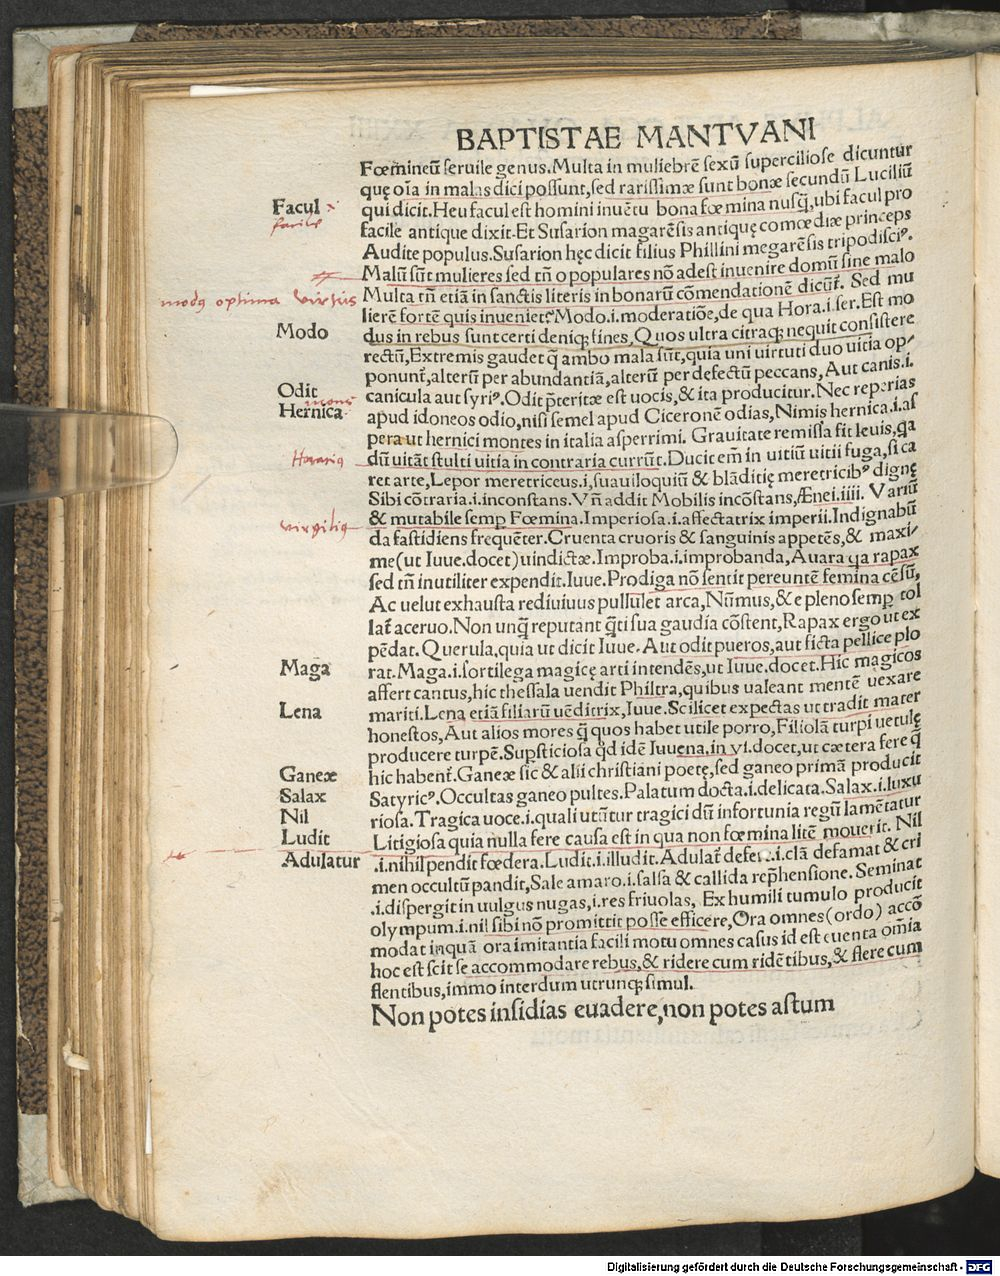 BAPTISTAE MANTVANI
Fœmineũ seruile genus. Multa in muliebrẽ sexũ superciliose dicuntur
quę oĩa in malas dici possunt, sed rarissimæ sunt bonæ secundũ Luciliũ
Facul
facile
qui dicit. Heu facul est homini inuẽtu bona fœmina nusq̃, ubi facul pro
facile antique dixit. Et Susarion magarẽsis antiquę comœdiæ princeps
Audite populus. Susarion hęc dicit filius Phillini megarẽsis tripodisciꝰ.
Malũ sũt mulieres sed tñ o populares nõ adest inuenire domũ sine malo
modꝰ optima virtus
Multa tñ etiã in sanctis literis in bonarũ cõmendationẽ dicũt. Sed mu
lierẽ fortẽ quis inueniet? Modo.i.moderatiõe, de qua Hora.i ser. Est mo
Modo
dus in rebus sunt certi deniqꝫ fines, Quos ultra citraqꝫ nequit consistere
rectũ, Extremis gaudet q̃ ambo mala sũt, quia uni uirtuti duo uitia op-
ponunt̃, alterũ per abundantiã, alterũ per defectũ peccans, Aut canis.i.
Odit
canicula aut syriꝰ. Odit p̃teritæ est uocis, & ita producitur. Nec reperias
mons
Hernica
apud idoneos odio, nisi semel apud Ciceronẽ odias, Nimis hernica.i.as
pera ut hernici montes in italia asperrimi. Grauitate remissa fit leuis, q̃a
Horatiꝰ
dũ uitãt stulti uitia in contraria currũt. Ducit em̃ in uitiũ uitii fuga, si ca
ret arte, Lepor meretriceus.i, suauiloquiũ & blãditię meretricibꝰ dignę
Sibi cõtraria.i.inconstans. Vñ addit Mobilis incõstans, Ænei.iiii. Variũ
virgiliꝰ
& mutabile semp Fœmina. Imperiosa.i.affectatrix imperii. Indignabũ
da fastidiens frequẽter. Cruenta cruoris & sanguinis appetẽs, & maxi-
me (ut Iuue. docet) uindictæ. Improba.i.improbanda, Auara q̃a rapax
sed tñ inutiliter expendit. Iuue. Prodiga nõ sentit pereuntẽ femina cẽsũ,
Ac uelut exhausta rediuiuus pullulet arca, Nũmus, & e pleno semp tol
lat̃ aceruo. Non unq̃ reputant q̃ti sua gaudia cõstent, Rapax ergo ut ex
pẽdat. Querula, quia ut dicit Iuue. Aut odit pueros, aut ficta pellice plo
Maga
rat. Maga.i.sortilega magicę arti intendẽs, ut Iuue. docet. Hic magicos
affert cantus, hic thessala uendit Philtra, quibus ualeant mentẽ uexare
Lena
mariti. Lena etiã filiarũ uẽditrix, Iuue. Scilicet expectas ut tradit mater
honestos, Aut alios mores q̃ quos habet utile porro, Filiolã turpi uetulę
producere turpẽ. Supsticiosa q̃d idẽ Iuuena. in vi. docet, ut cætera fere q̃
Ganeæ
hic habent̃. Ganeæ sic & alii christiani poetę, sed ganeo primã producit
Salax
Satyricꝰ. Occultas ganeo pultes. Palatum docta.i.delicata. Salax.i.luxu
Nil
riosa. Tragica uoce.i.quali utãtur tragici dũ infortunia regũ lamẽtatur
Ludit
Litigiosa quia nulla fere causa est in qua non fœmina litẽ mouerit. Nil
Adulatur
.i.nihil pendit fœdera. Ludit.i.illudit. Adulat̃ defert.i.clã defamat & cri
men occultũ pandit, Sale amaro.i.salsa & callida rep̃hensione. Seminat
.i.dispergit in uulgus nugas, i.res friuolas, Ex humili tumulo producit
olympum.i.nil sibi nõ promittit posse efficere, Ora omnes (ordo) accõ
modat inquã ora imitantia facili motu omnes casus id est euenta om̃ia
hoc est scit se accommodare rebus, & ridere cum ridẽtibus, & flere cum
flentibus, immo interdum utrunqꝫ simul.
Non potes insidias euadere, non potes astum
Digitalisierung gefördert durch die Deutsche Forschungsgemeinschaft - DFG